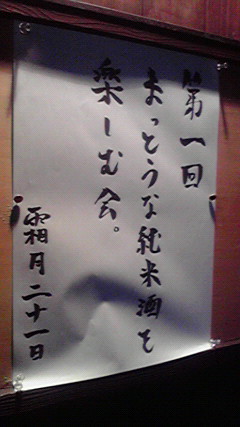 第一回
まっとうな純米酒を
楽しむ会。
霜月二十一日